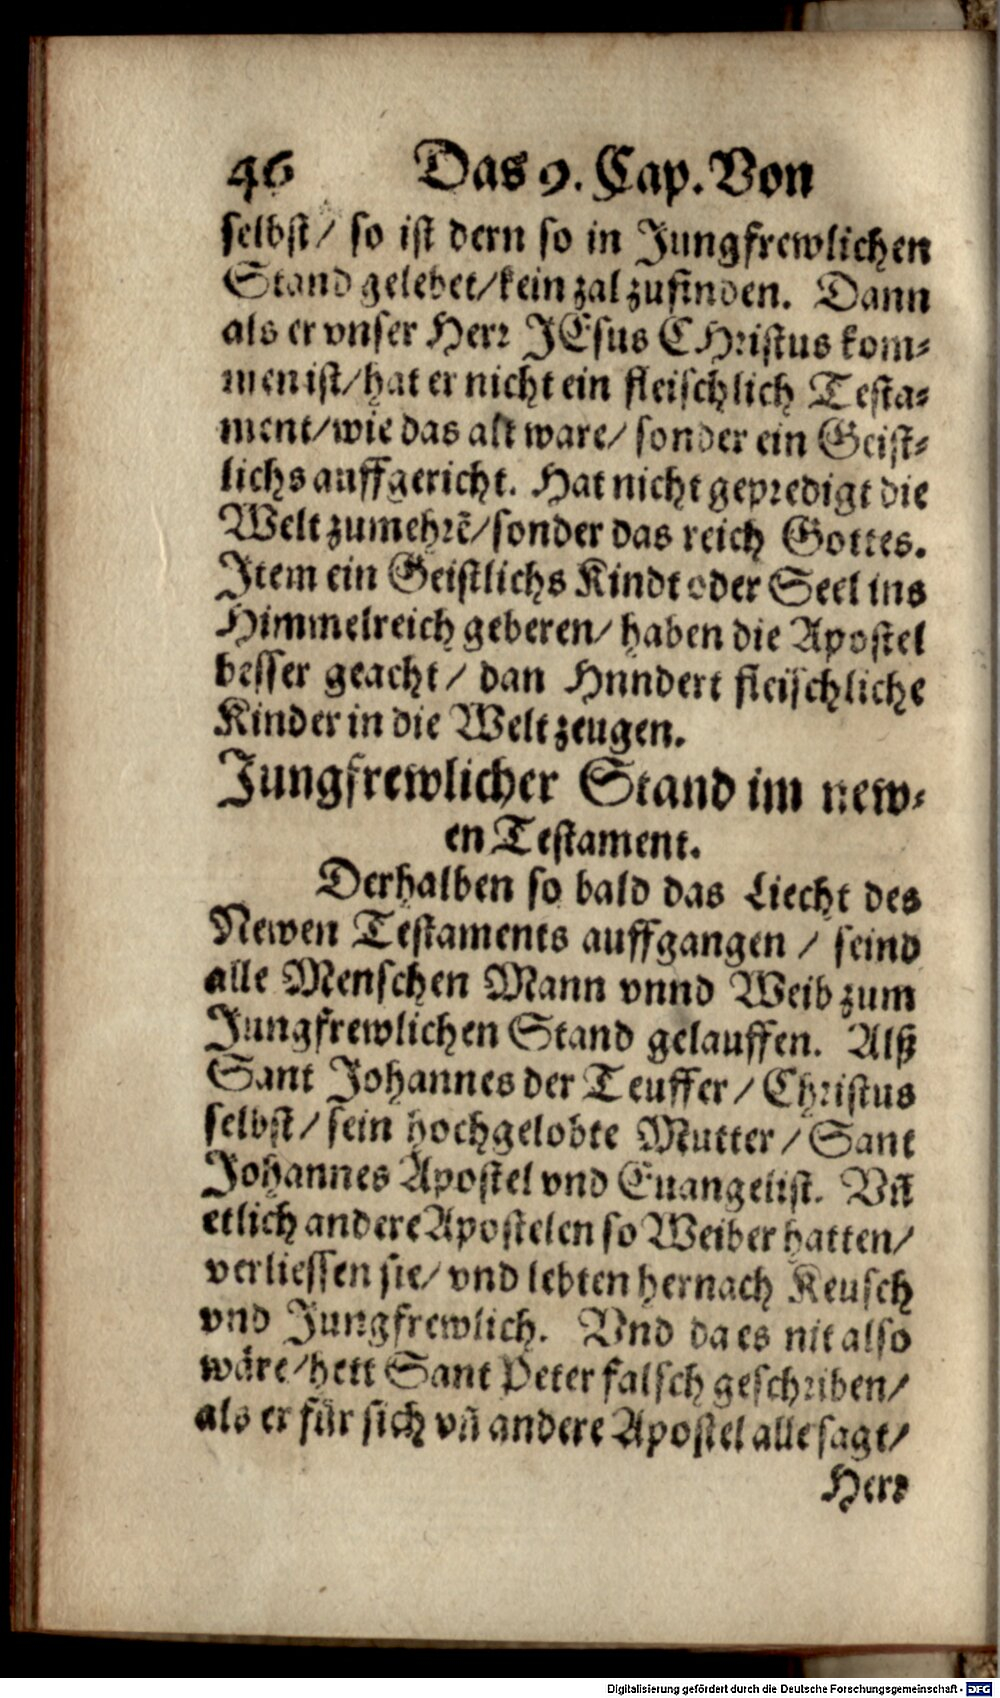 46 Das 9. Cap. Von
selbst/ so ist dern so in Jungfrewlichen
Stand gelebet/kein zal zufinden. Dann
als er vnser Herr JEsus CHristus kom⸗
men ist/hat er nicht ein fleischlich Testa⸗
ment/wie das alt ware/ sonder ein Geist⸗
lichs auffgericht. Hat nicht gepredigt die
Welt zumehrẽ/sonder das reich Gottes.
Item ein Geistlichs Kindt oder Seel ins
Himmelreich geberen/ haben die Apostel
besser geacht/ dan Hnndert fleischliche
Kinder in die Welt zeugen.
Jungfrewlicher Stand im new⸗
en Testament.
Derhalben so bald das Liecht des
Newen Testaments auffgangen / seind
alle Menschen Mann vnnd Weib zum
Jungfrewlichen Stand gelauffen. Alß
Sant Johannes der Teuffer/ Christus
selbst/ sein hochgelobte Mutter/ Sant
Johannes Apostel vnd Euangelist. Vñ
etlich andere Apostelen so Weiber hatten/
verliessen sie/ vnd lebten hernach Keusch
vnd Jungfrewlich. Vnd da es nit also
wäre/hett Sant Peter falsch geschriben/
als er für sich vñ andere Apostel alle sagt/
Herr
Digitalisierung gefördert durch die Deutsche Forschungsgemeinschaft - DFG